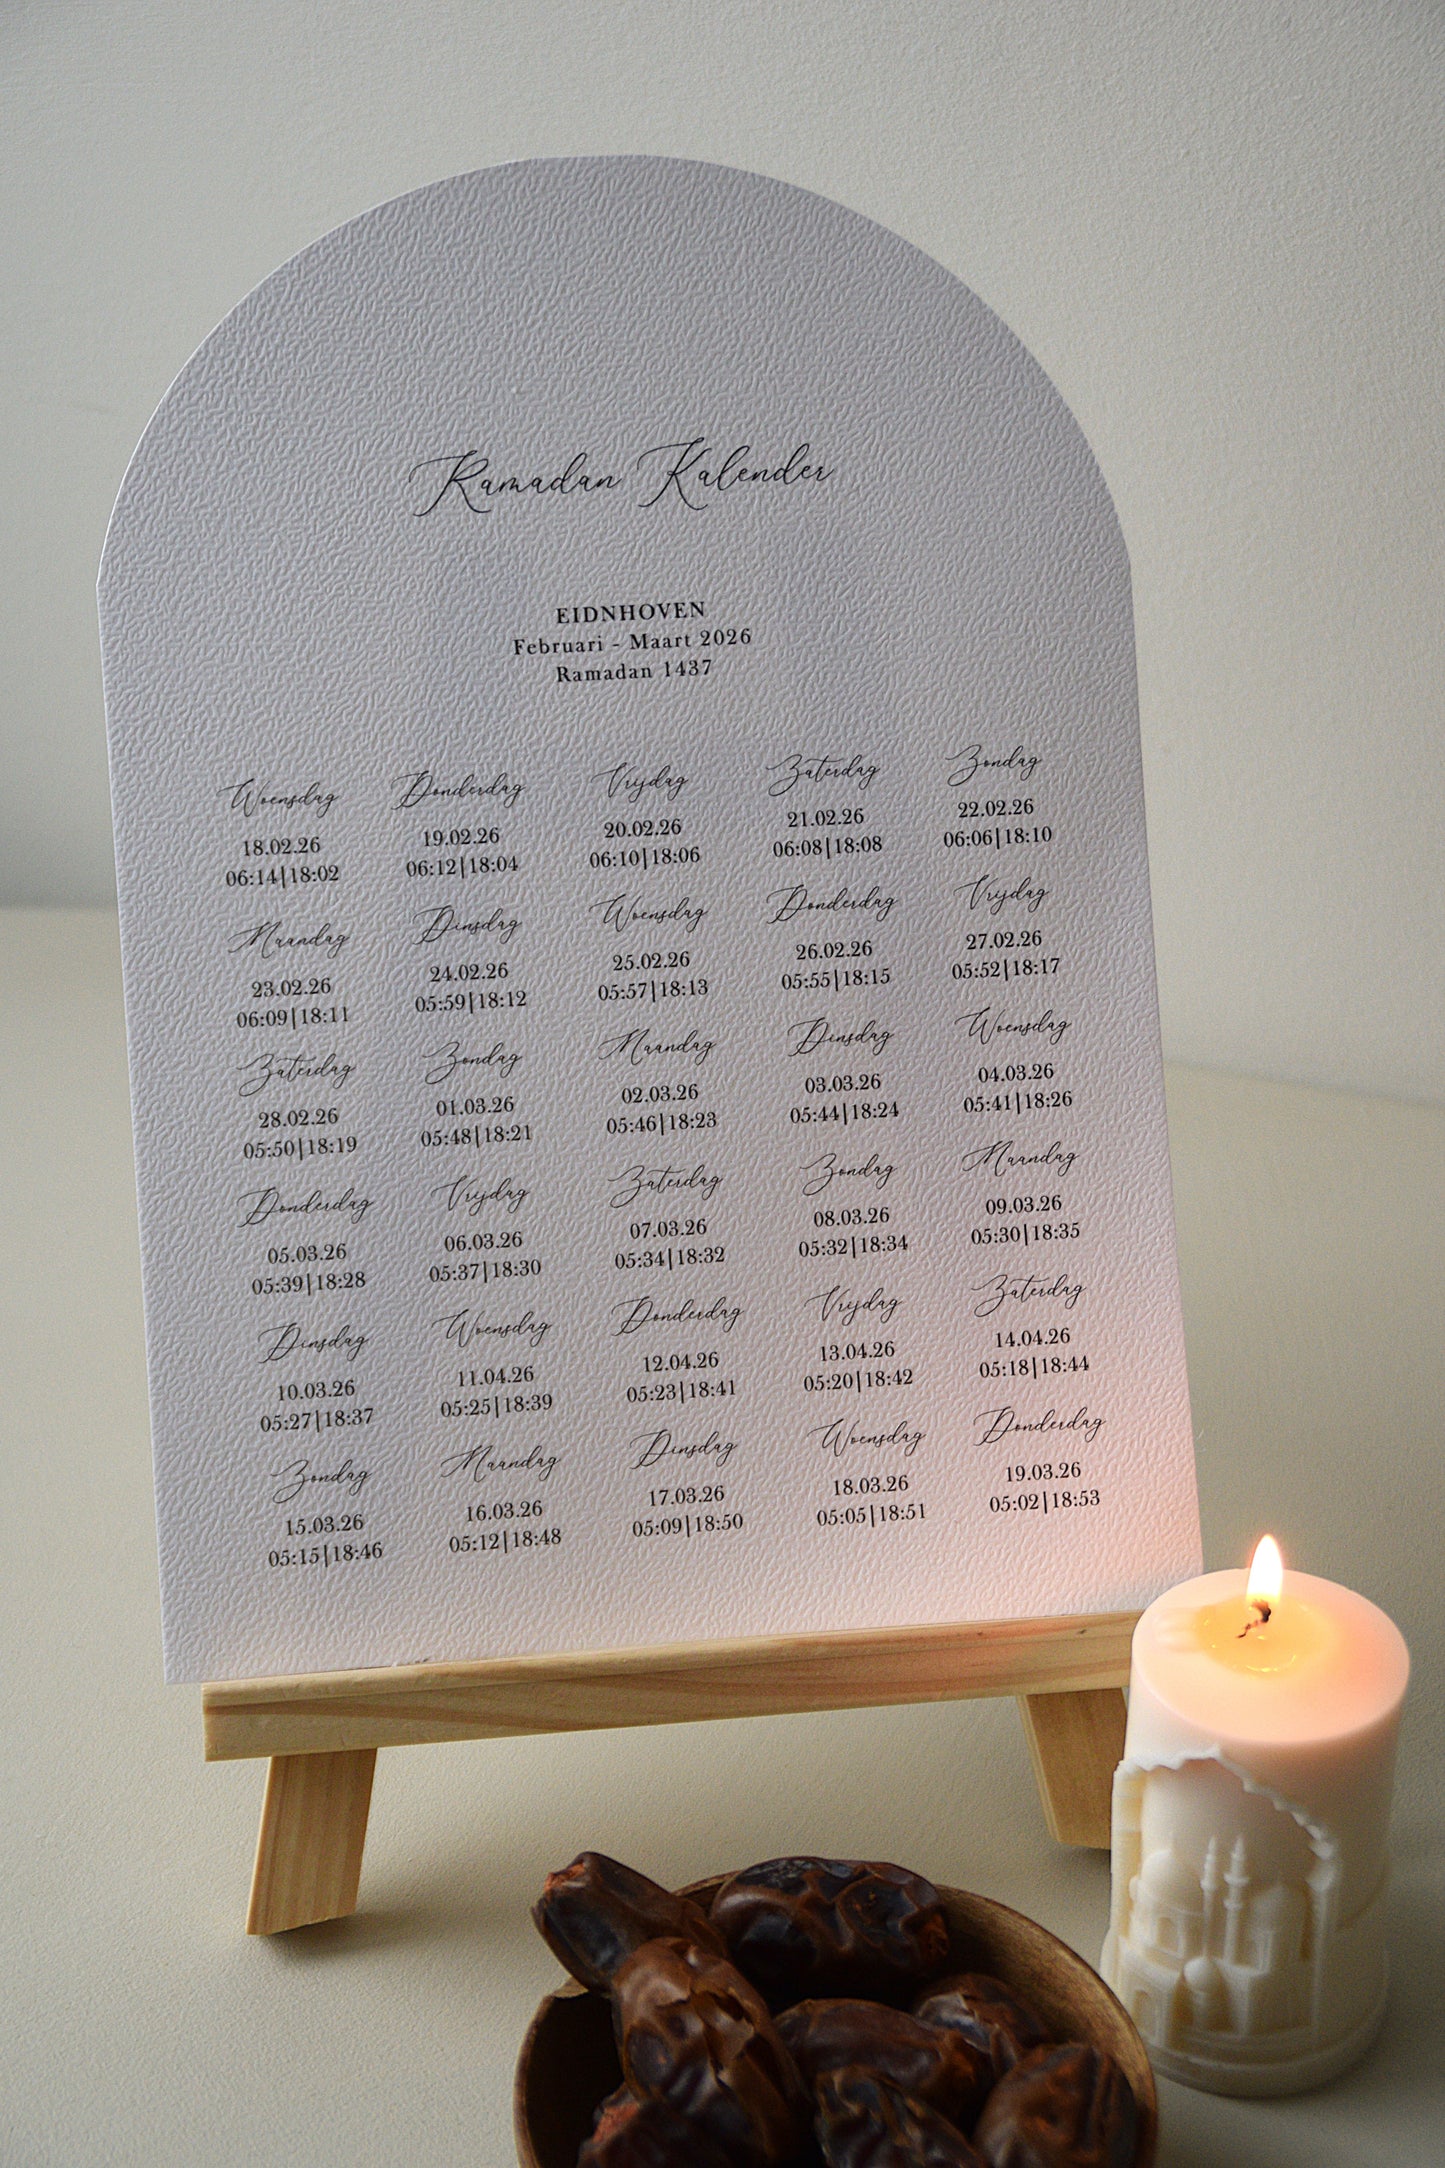 Ramadan Kalender
EIDNHOVEN
Februari - Maart 2026
Ramadan 1437
Woensdag Donderdag Vrijdag Zaterdag Zondag
18.02.26 19.02.26 20.02.26 21.02.26 22.02.26
06:14|18:02 06:12|18:04 06:10|18:06 06:08|18:08 06:06|18:10
Maandag Dinsdag Woensdag Donderdag Vrijdag
23.02.26 24.02.26 25.02.26 26.02.26 27.02.26
06:09|18:11 05:59|18:12 05:57|18:13 05:55|18:15 05:52|18:17
Zaterdag Zondag Maandag Dinsdag Woensdag
28.02.26 01.03.26 02.03.26 03.03.26 04.03.26
05:50|18:19 05:48|18:21 05:46|18:23 05:44|18:24 05:41|18:26
Donderdag Vrijdag Zaterdag Zondag Maandag
05.03.26 06.03.26 07.03.26 08.03.26 09.03.26
05:39|18:28 05:37|18:30 05:34|18:32 05:32|18:34 05:30|18:35
Dinsdag Woensdag Donderdag Vrijdag Zaterdag
10.03.26 11.04.26 12.04.26 13.04.26 14.04.26
05:27|18:37 05:25|18:39 05:23|18:41 05:20|18:42 05:18|18:44
Zondag Maandag Dinsdag Woensdag Donderdag
15.03.26 16.03.26 17.03.26 18.03.26 19.03.26
05:15|18:46 05:12|18:48 05:09|18:50 05:05|18:51 05:02|18:53